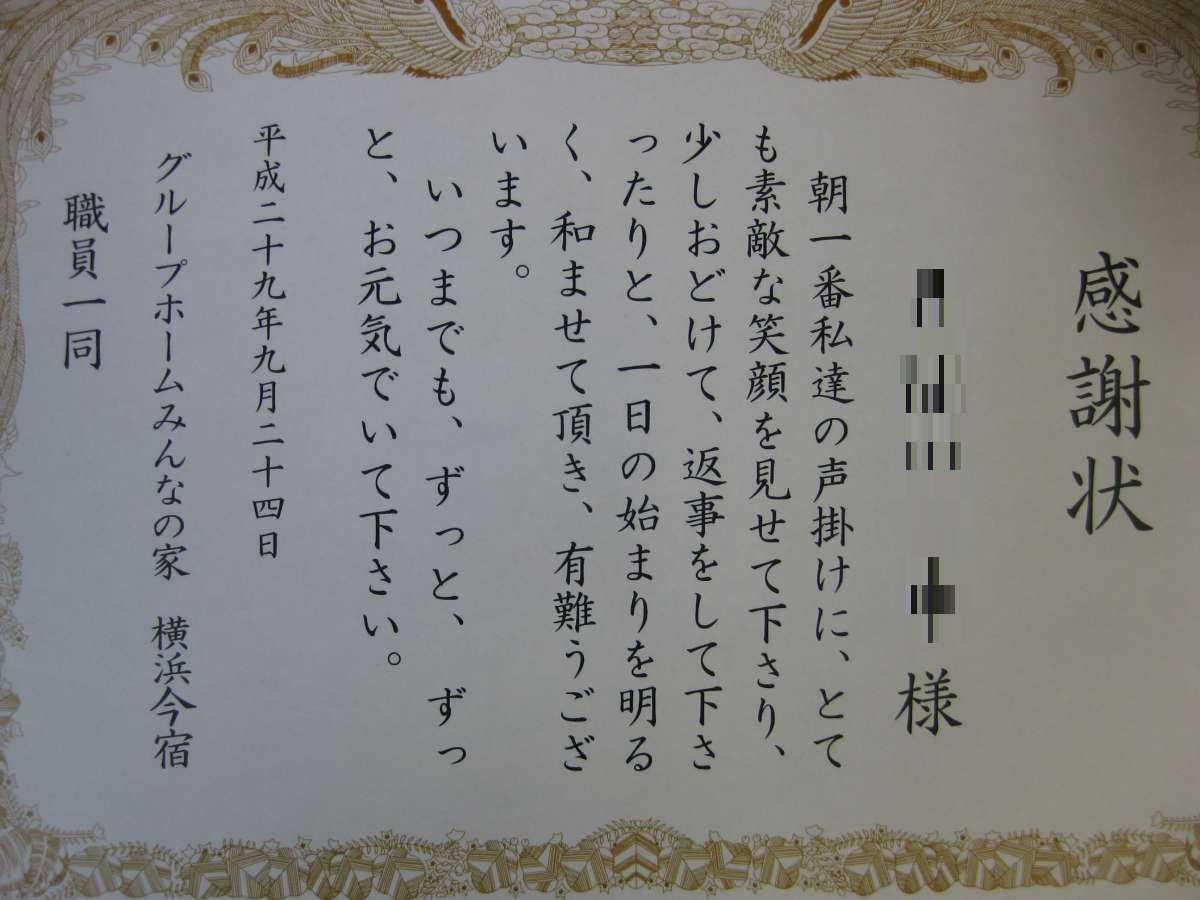 感謝状
様
朝一番私達の声掛けに、とて
も素敵な笑顔を見せて下さり、
少しおどけて、返事をして下さ
ったりと、一日の始まりを明る
く、和ませて頂き、有難うござ
います。
いつまでも、ずっと、ずっ
と、お元気でいて下さい。
平成二十九年九月二十四日
グループホームみんなの家　横浜今宿
職員一同